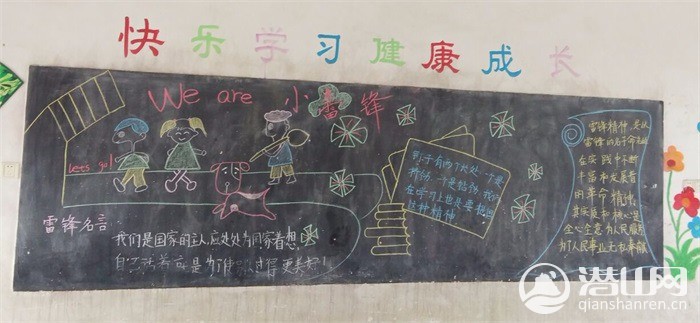 快乐学习健康成长
We are 小雷锋
Let's go!
雷锋名言：
我们是国家的主人，应处处为国家着想
自己活着就是为了使过得更美好！
钉子有两个长处：一是
挤劲，一是钻劲，我们
在学习上也要提倡
这种精神
雷锋精神，是以
雷锋的名字命名
在实践中不断
丰富和发展着
的革命精神，
其实质和核心是
全心全意为人民服务
为了人民事业无私奉献
潜山网
qianshanren.cn